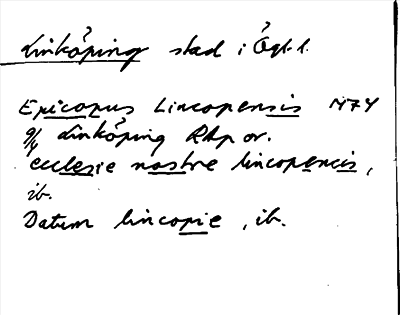 Linköping stad i Ögl.
Epicopus Lincopensis 1174
9/4 Linköping RAp or.
ecclesie nostre lincopencis,
ib.
Datum lincopie, ib.